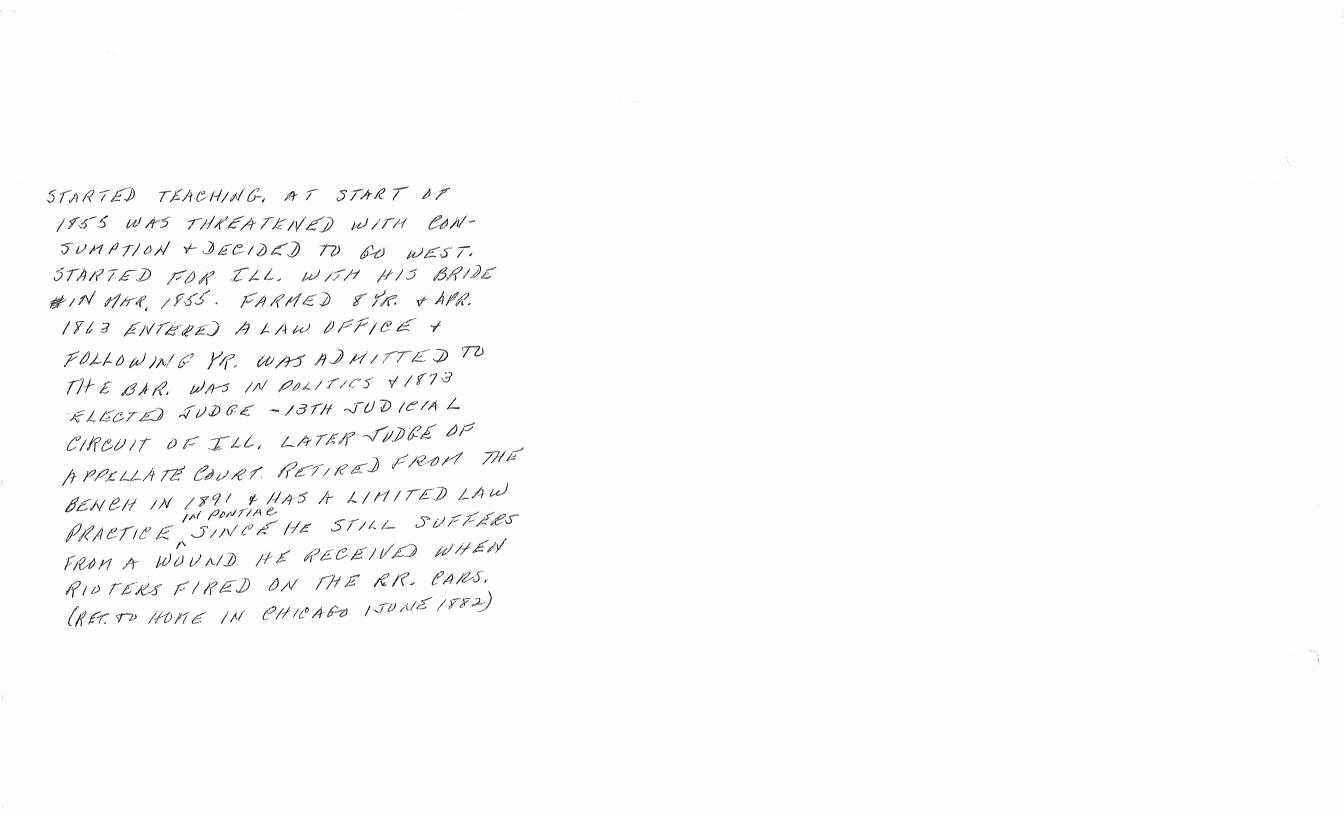 STARTED TEACHING. AT START OF
1855 WAS THREATENED WITH CON-
SUMPTION + DECIDED TO GO WEST.
STARTED FOR ILL. WITH HIS BRIDE
IN MAR. 1855. FARMED 8 YR. + APR.
1863 ENTERED A LAW OFFICE +
FOLLOWING YR. WAS ADMITTED TO
THE BAR. WAS IN POLITICS + 1873
ELECTED JUDGE - 13TH JUDICIAL
CIRCUIT OF ILL. LATER JUDGE OF
APPELLATE COURT. RETIRED FROM THE
BENCH IN 1891 + HAS A LIMITED LAW
PRACTICE IN PONTIAC SINCE HE STILL SUFFERS
FROM A WOUND HE RECEIVED WHEN
RIOTERS FIRED ON THE RR. CARS.
(RET. TO HOME IN CHICAGO 1 JUNE 1882)